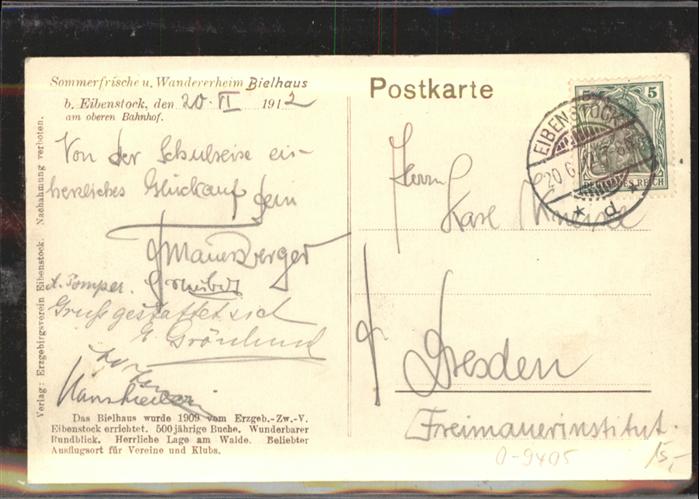 Sommerfrische u. Wandererheim Bielhaus
b. Eibenstock, den 20. VI 1912
am oberen Bahnhof.
Von der Schulreise ein
herzliches Glückauf Dein
Mauersberger
A. Pomper.
Gruß gestattet sich
E. Grönlund
Das Bielhaus wurde 1909 vom Erzgeb.-Zw.-V.
Eibenstock errichtet. 500jährige Buche. Wunderbarer
Rundblick. Herrliche Lage am Walde. Beliebter
Ausflugsort für Vereine und Klubs.
Verlag: Erzgebirgsverein Eibenstock. Nachahmung verboten.
Postkarte
5
DEUTSCHES REICH
EIBENSTOCK
20.6.
* d *
Herrn
Karl
Dresden
Freimaurerinstitut.
0-9405
15,-